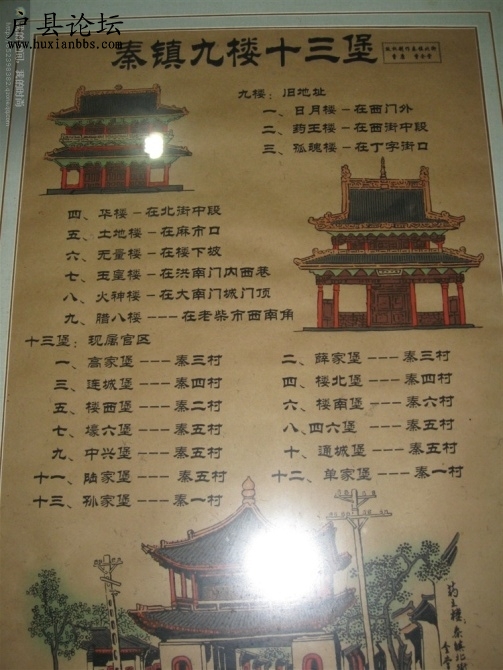 户县论坛
www.huxianbbs.com
秦镇九楼十三堡
九楼：旧地址
一、日月楼－在西门外
二、药王楼－在西街中段
三、孤魂楼－在丁字街口
四、华楼－在北街中段
五、土地楼－在麻市口
六、无量楼－在楼下坡
七、玉皇楼－在洪南门内西巷
八、火神楼－在大南门城门顶
九、腊八楼－－－在老柴市西南角
十三堡：现属官区
一、高家堡－－－秦三村
二、薛家堡－－－秦三村
三、连城堡－－－秦四村
四、楼北堡－－－秦四村
五、楼西堡－－－秦二村
六、楼南堡－－－秦六村
七、壕六堡－－－秦五村
八、四六堡－－－秦五村
九、中兴堡－－－秦五村
十、通城堡－－－秦五村
十一、陆家堡－－－秦五村
十二、单家堡－－－秦一村
十三、孙家堡－－－秦一村
药王楼：秦镇北